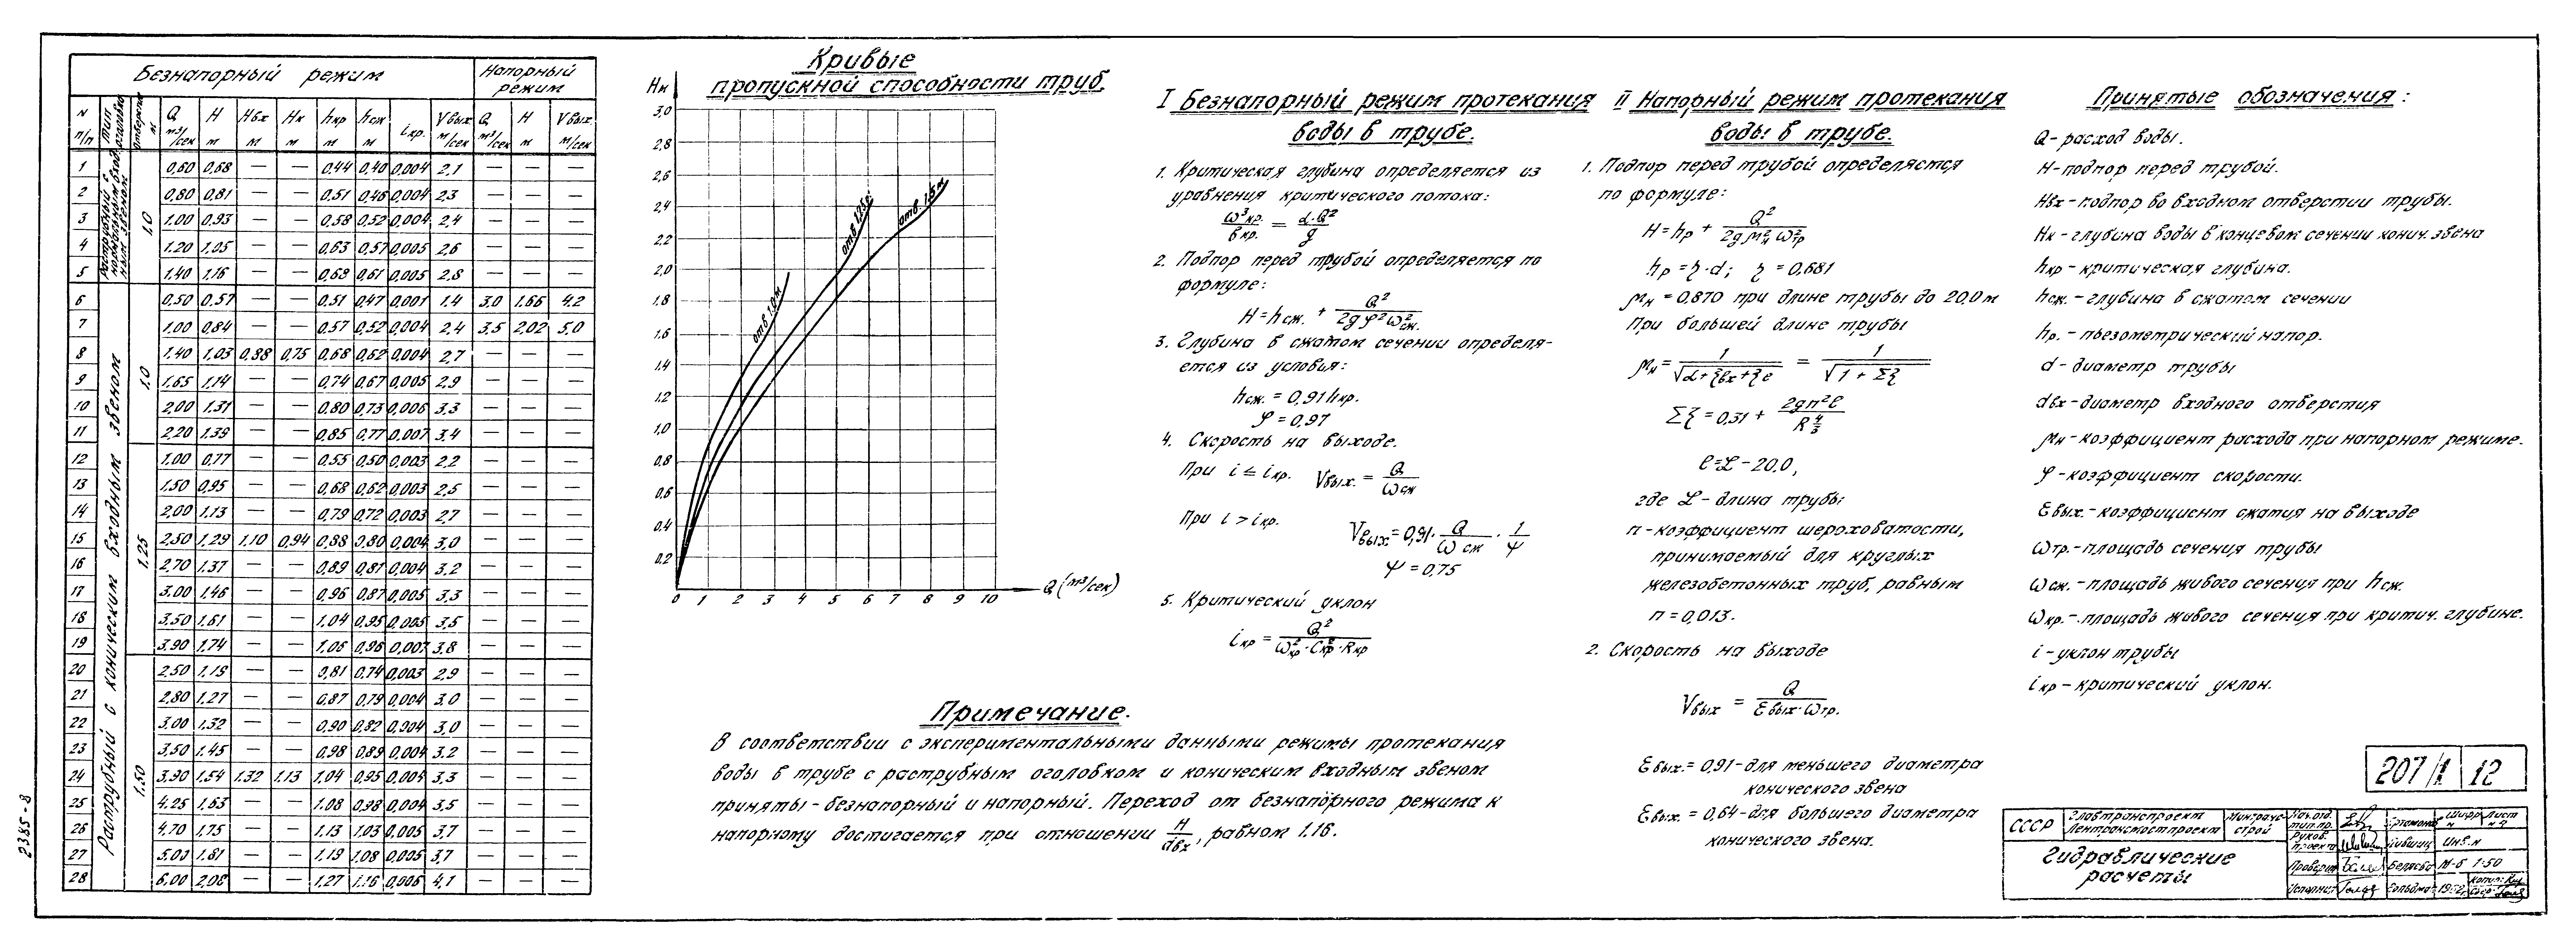 Безнапорный режим
Напорный режим
N п/п
Тип оголовка
Q м³/сек
H м
Hвх м
Hк м
hкр м
hсж м
iкр.
Vвых м/сек
Q м³/сек
H м
Vвых м/сек
1 0,60 0,68 — — 0,44 0,40 0,004 2,1 — — —
2 0,80 0,81 — — 0,51 0,46 0,004 2,3 — — —
3 1.00 0,93 — — 0,58 0,52 0,004 2,4 — — —
4 1.20 1,05 — — 0,63 0,57 0,005 2,6 — — —
5 1.40 1,16 — — 0,68 0,61 0,005 2,8 — — —
1,0
6 0,50 0,57 — — 0,51 0,47 0,001 1.4 3,0 1.66 4.2
7 1,00 0,84 — — 0,57 0,52 0,004 2,4 3,5 2,02 5,0
8 1.40 1.03 0,88 0,75 0,68 0,62 0,004 2,7 — — —
9 1,65 1,14 — — 0,74 0,67 0,005 2,9 — — —
10 2,00 1.31 — — 0,80 0,73 0,006 3,3 — — —
11 2,20 1.39 — — 0,85 0,77 0,007 3,4 — — —
1.0
12 1.00 0,77 — — 0,55 0,50 0,003 2,2 — — —
13 1,50 0,95 — — 0,68 0,62 0,003 2,5 — — —
14 2,00 1.13 — — 0,79 0,72 0,003 2,7 — — —
15 2,50 1,29 1,10 0,94 0,88 0,80 0,004 3,0 — — —
16 2,70 1.37 — — 0,89 0,81 0,004 3,2 — — —
17 3.00 1.46 — — 0,96 0,87 0,005 3,3 — — —
18 3,50 1,61 — — 1,04 0,95 0,005 3,5 — — —
19 3.90 1.74 — — 1,06 0,96 0,007 3,8 — — —
1.25
20 2,50 1,19 — — 0,81 0,74 0,003 2,9 — — —
21 2,80 1,27 — — 0,87 0,79 0,004 3,0 — — —
22 3,00 1.32 — — 0,90 0,82 0,004 3,0 — — —
23 3,50 1.45 — — 0,98 0,89 0,004 3,2 — — —
24 3.90 1.54 1.32 1.13 1,04 0,95 0,004 3,3 — — —
25 4.25 1,63 — — 1.08 0,98 0,004 3,5 — — —
26 4.70 1.75 — — 1.13 1.03 0,005 3,7 — — —
27 5.00 1.81 — — 1.19 1.08 0,005 3,7 — — —
28 6.00 2,08 — — 1.27 1.16 0,006 4,1 — — —
1.50
Раструбный с коническим входным звеном
Кривые
пропускной способности труб.
Hн
3,0
2,8
2,6
2,4
2,2
2,0
1,8
1,6
1,4
1.2
1,0
0,8
0,6
0,4
0,2
0 1 2 3 4 5 6 7 8 9 10
Q (м³/сек)
отв. 1.0м
отв. 1.5м
Примечание.
В соответствии с экспериментальными данными режимы протекания
воды в трубе с раструбным оголовком и коническим входным звеном
приняты - безнапорный и напорный. Переход от безнапорного режима к
напорному достигается при отношении H/dвх, равном 1.16.
I Безнапорный режим протекания
воды в трубе.
1. Критическая глубина определяется из
уравнения критического потока:
ω³кр./bкр. = α·Q²/g
2. Подпор перед трубой определяется по
формуле:
H = hсж. + Q²/2gφ²ω²сж.
3. Глубина в сжатом сечении определя-
ется из условия:
hсж. = 0,91 hкр.
φ = 0,97
4. Скорость на выходе.
При i ≤ iкр. Vвых. = Q/ωсж
При i > iкр. Vвых = 0,91 · Q/ωсж · 1/ψ
ψ = 0,75
5. Критический уклон
iкр = Q²/ω²кр·C²кр·Rкр
II Напорный режим протекания
воды в трубе.
1. Подпор перед трубой определяется
по формуле:
H = hр + Q²/2gμ²н ω²тр
hр = η·d; η = 0,681
μн = 0,870 при длине трубы до 20,0 м
При большей длине трубы
μн = 1/√α+ξвх+ξℓ = 1/√1+Σξ
Σξ = 0,31 + 2gn²ℓ/R^4/3
ℓ = L - 20.0,
где L - длина трубы;
n - коэффициент шероховатости,
принимаемый для круглых
железобетонных труб, равным
n = 0,013.
2. Скорость на выходе
Vвых = Q/εвых·ωтр.
εвых. = 0,91 - для меньшего диаметра
конического звена
εвых. = 0,64 - для большего диаметра
конического звена.
Принятые обозначения:
Q - расход воды.
H - подпор перед трубой.
Hвх - подпор во входном отверстии трубы.
Hк - глубина воды в концевом сечении конич. звена
hкр - критическая глубина.
hсж. - глубина в сжатом сечении
hр. - пьезометрический напор.
d - диаметр трубы
dвх - диаметр входного отверстия
μн - коэффициент расхода при напорном режиме.
φ - коэффициент скорости.
εвых. - коэффициент сжатия на выходе
ωтр. - площадь сечения трубы
ωсж. - площадь живого сечения при hсж.
ωкр. - площадь живого сечения при критич. глубине.
i - уклон трубы
iкр - критический уклон.
207/1 12
СССР
Главтранспроект
Ленгранспроект
Минтрансстрой
Гидравлические
расчеты
М-б 1:50
2385-8